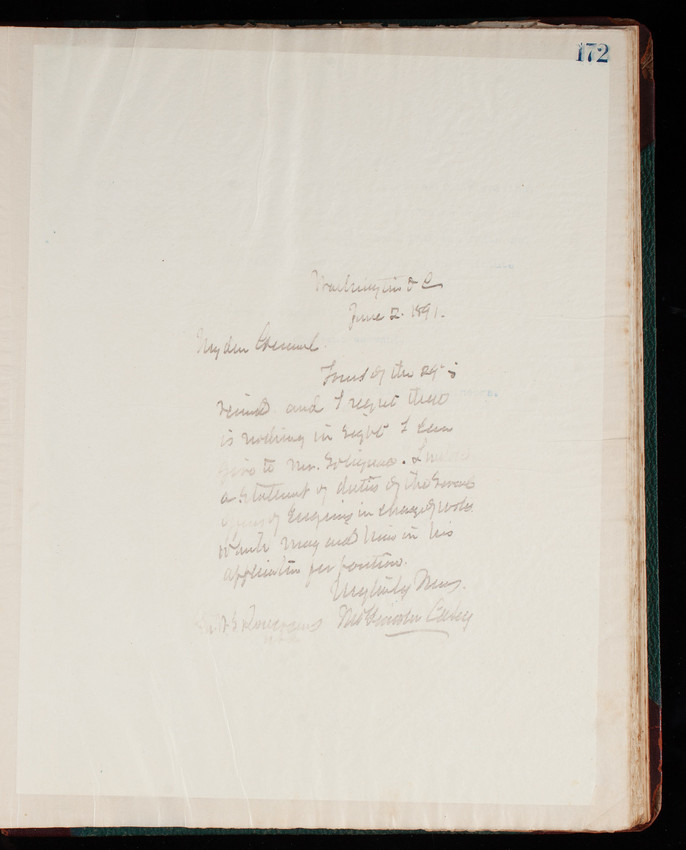 172
Washington D C
June 2. 1891.
My dear General.
Yours of the 29 is
recind. and I regret there
is nothing in sight I can
give to Mr.
a statement of duties of the several
of Engrs in charge of works
which may aid him in his
application for position.
Very truly Yours.
Thos Lincoln Casey